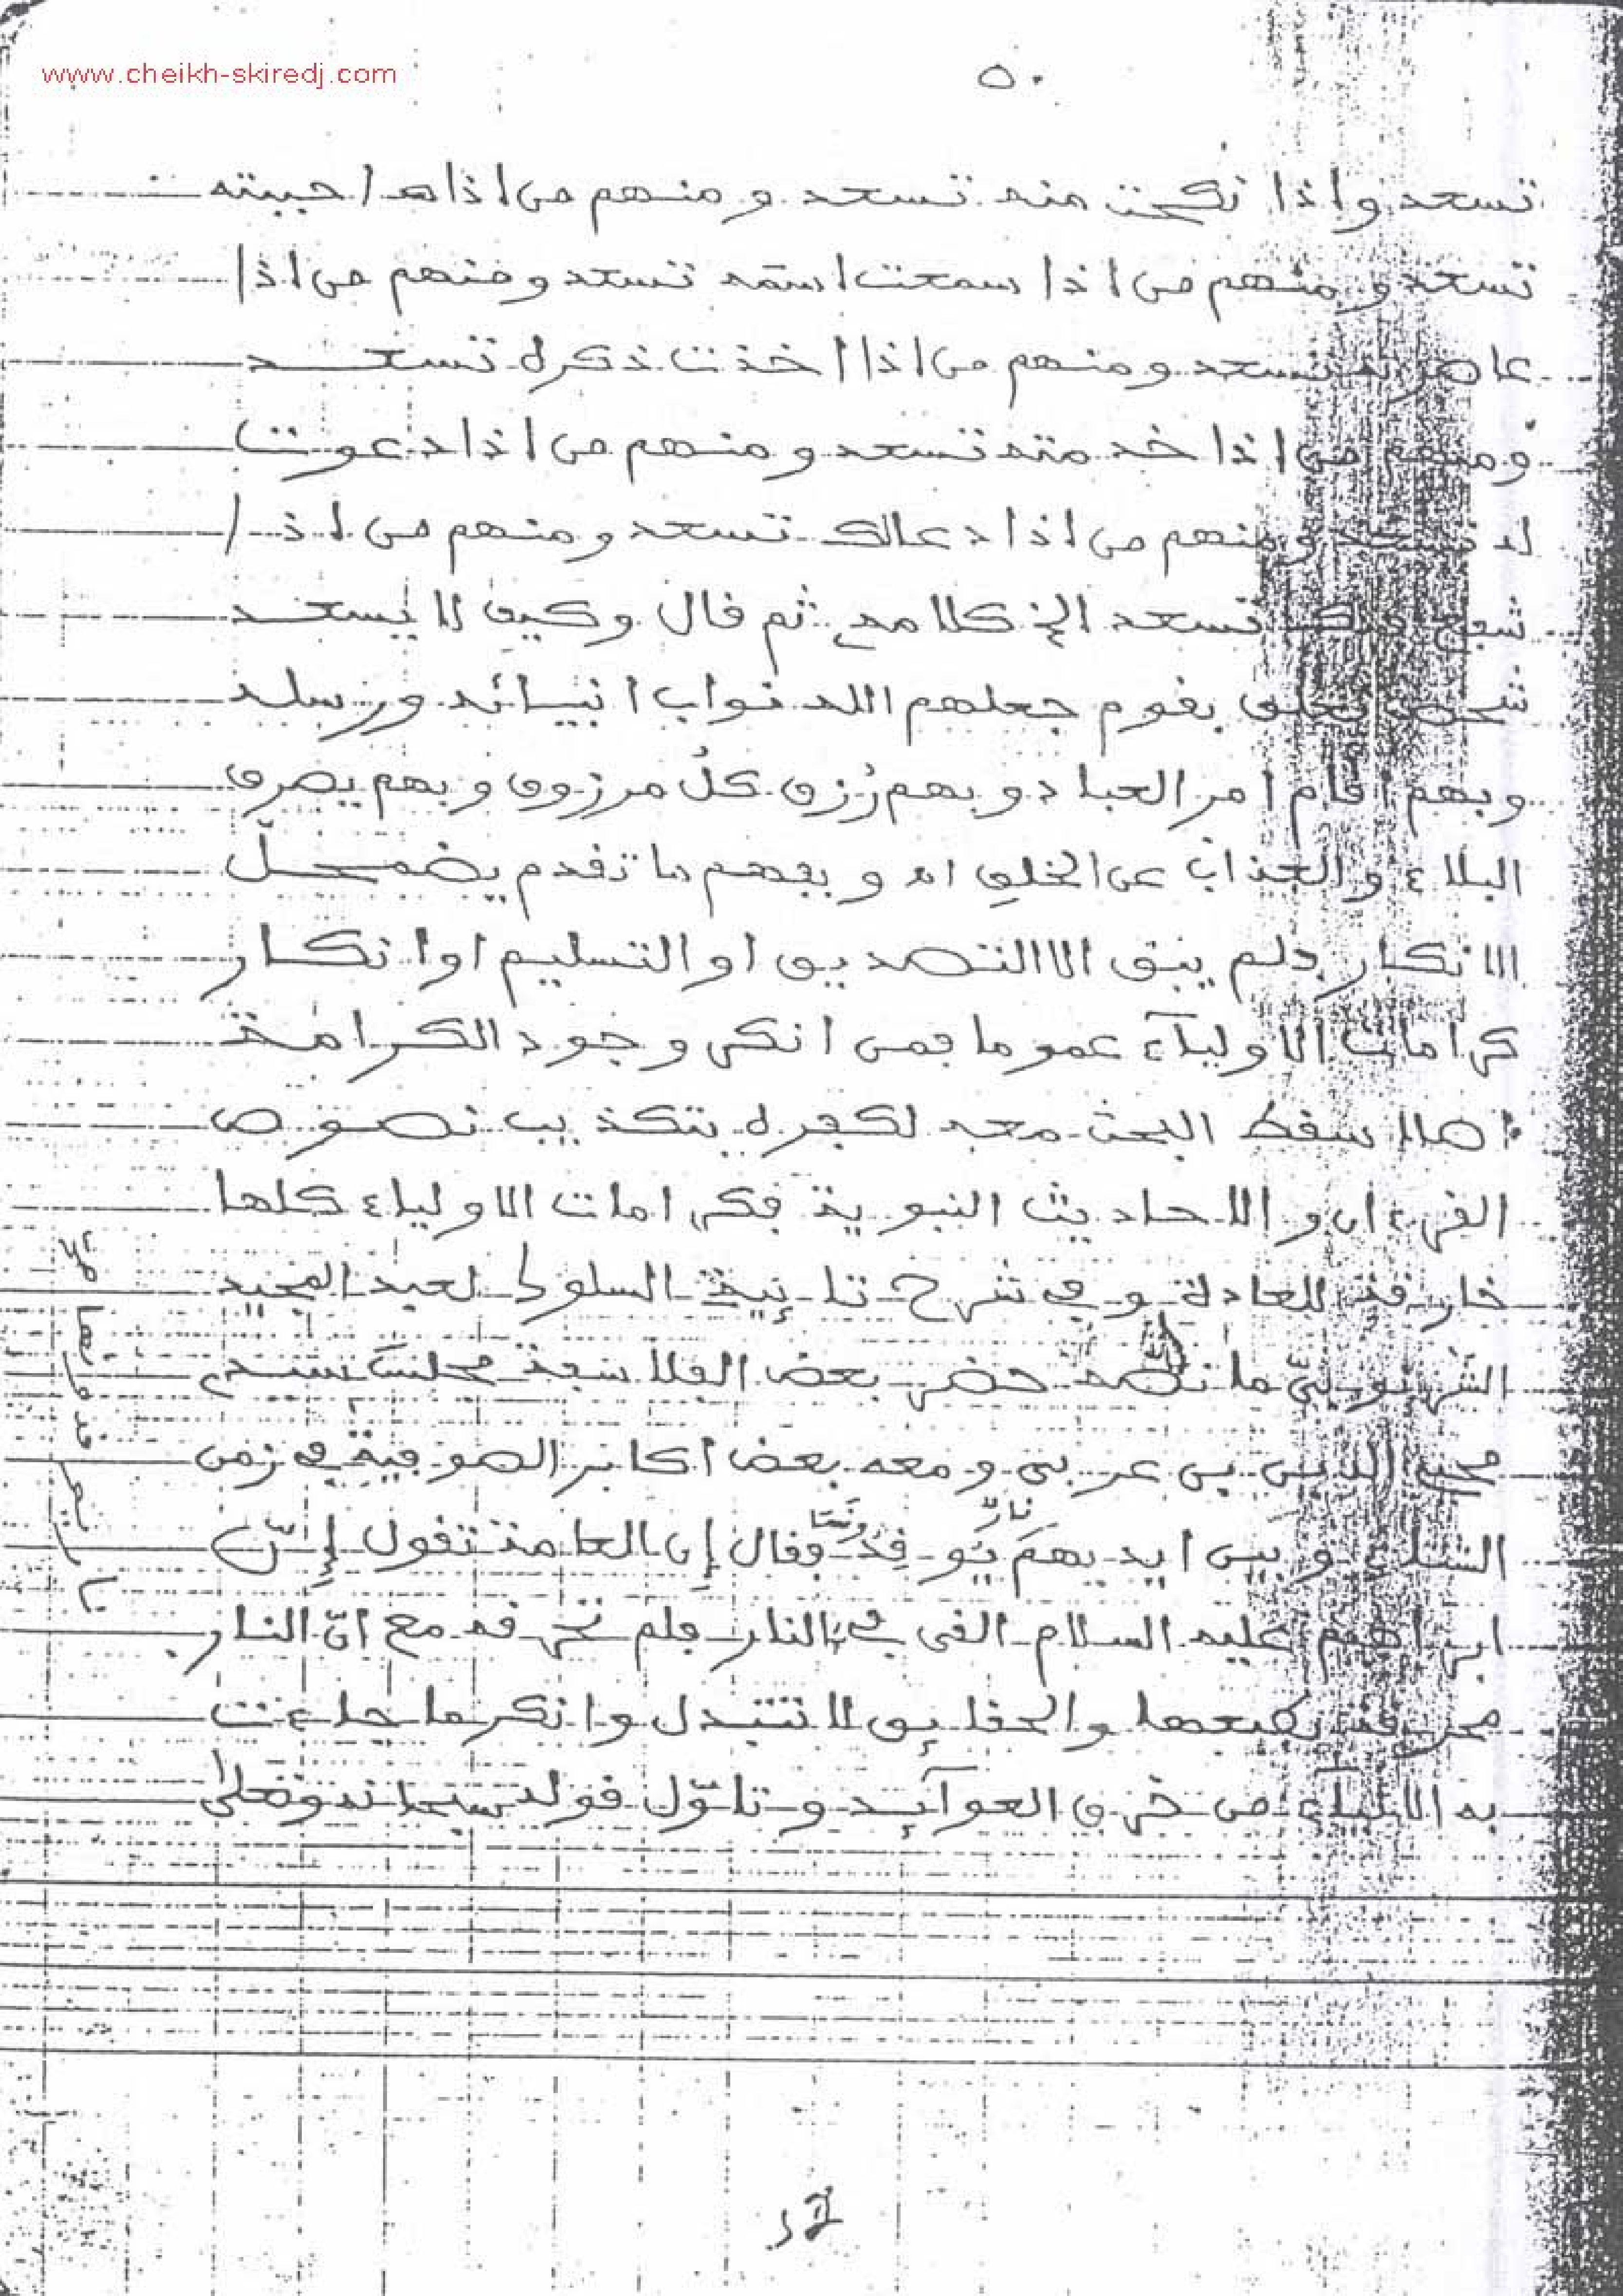 www.cheikh-skiredj.com
٥٠
تسعد واذا نكحت منه تسعد ومنهم من اذا احببته
تسعد ومنهم من اذا سمعت اسمه تسعد ومنهم من اذا
عاصرته تسعد ومنهم من اذا اخذت ذكره تسعد
ومنهم من اذا خدمته تسعد ومنهم من اذا دعوت
له تسعد ومنهم من اذا دعا لك تسعد ومنهم من اذا
شفع فيك تسعد الخ كلامه ثم قال وكيف لا يسعد
شخص تعلق بقوم جعلهم الله نواب انبيائه ورسله
وبهم اقام امر العباد وبهم رُزق كلّ مرزوق وبهم يصرف
البلاء والعذاب عن الخلق اه وبفهم ما تقدم يضمحلّ
الانكار فلم يبق الا التصديق او التسليم او انكار
كرامات الاوليآء عموما فمن انكر وجود الكرامة
اصلا سقط البحث معه لكفره بتكذيب نصوص
القرءان والاحاديث النبوية فكرامات الاولياء كلها
خارقة للعادة وفي شرح تائية السلوك لعبد المجيد
الشرنوبيّ ما نصه حضر بعض الفلاسفة مجلس سيدي
محي الدين بن عربي ومعه بعض اكابر الصوفية في زمن
الشتاء وبين ايديهم نارٌ يُوقِدُونَها فقال إن العامة تقول إِنّ
ابراهيم عليه السلام القي في النار فلم تحرقه مع انّ النار
محرقة بطبعها والحقايق لا تتبدل وانكر ما جاءت
به الانبيآء من خرق العوآيد وتاوّل قوله سبحانه وتعلى